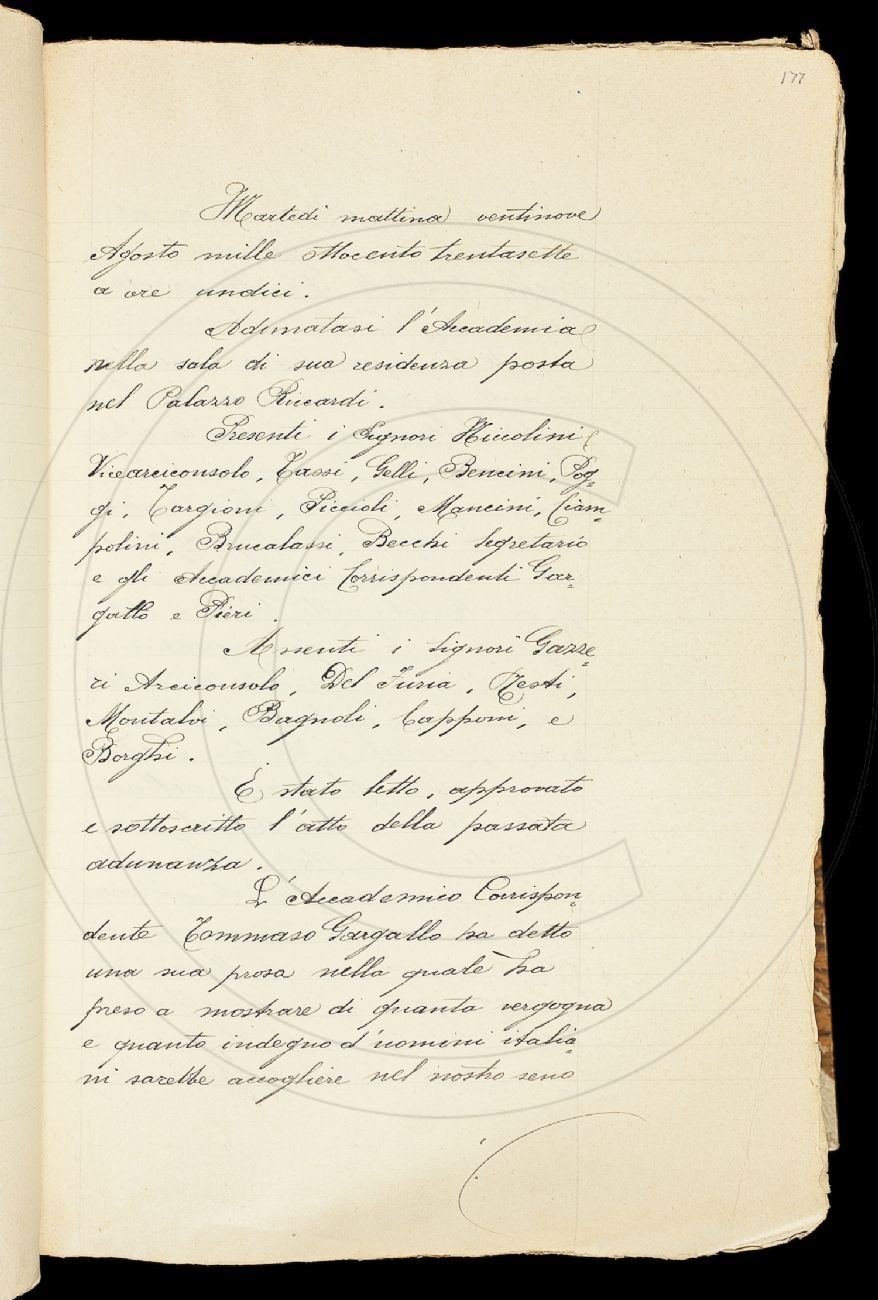 177
Martedì mattina ventinove
Agosto mille ottocento trentasette
a ore undici.
Adunatasi l'Accademia
nella sala di sua residenza posta
nel Palazzo Riccardi.
Presenti i Signori Niccolini
Vicearciconsolo, Tassi, Gelli, Bencini, Pog=
gi, Targioni, Piccioli, Mancini, Ciam=
polini, Brucalassi, Becchi Segretario
e gli Accademici Corrispondenti Gar=
gallo e Pieri.
Assenti i Signori Gazze=
ri Arciconsolo, Del Furia, Nesti,
Montalvi, Bagnoli, Capponi, e
Borghi.
È stato letto, approvato
e sottoscritto l'atto della passata
adunanza.
L'Accademico Corrispon=
dente Tommaso Gargallo ha detto
una sua prosa nella quale ha
preso a mostrare di quanta vergogna
e quanto indegno d'uomini italia=
ni sarebbe accogliere nel nostro seno